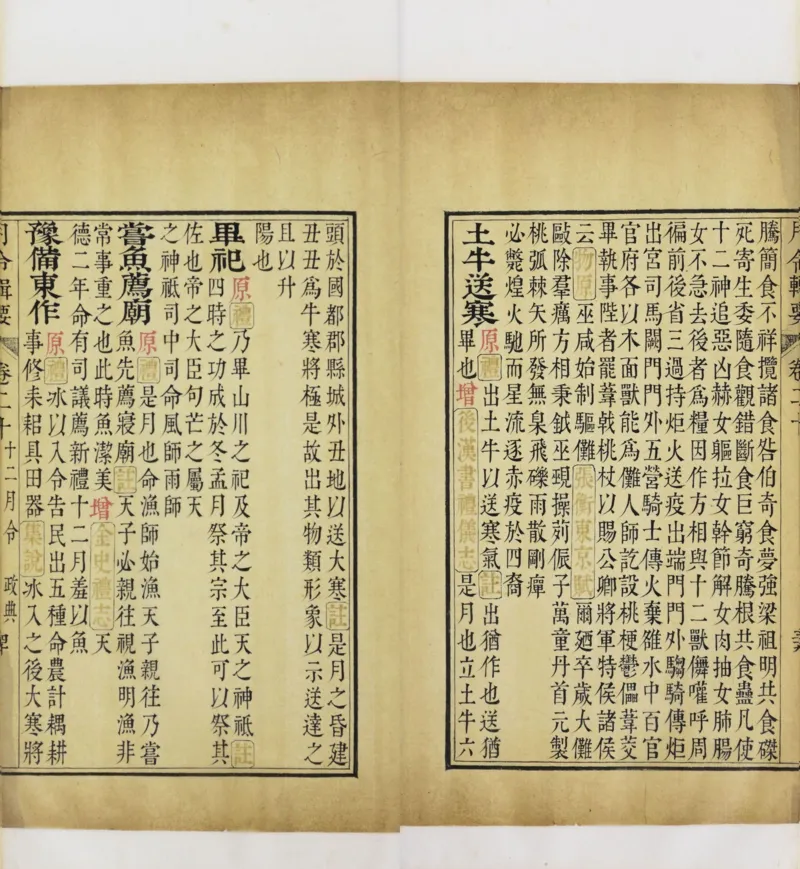 月令輯要 卷二十
騰簡食不祥攬諸食咎伯奇食夢強梁祖明共食磔
死寄生委隨食觀錯斷食巨窮奇騰根共食蠱凡使
十二神追惡凶赫女軀拉女幹節解女肉抽女肺腸
女不急去後者爲糧因作方相與十二獸儛嚾呼周
徧前後省三過持炬火送疫出端門門外騶騎傳炬
出宮司馬闕門門外五營騎士傳火棄雒水中百官
官府各以木面獸能爲儺人師訖設桃梗鬱儡葦茭
畢執事陛者罷葦戟桃杖以賜公卿將軍特侯諸侯
云物原巫咸始制驅儺張衡東京賦爾廼卒歲大儺
敺除羣癘方相秉鉞巫覡操茢侲子萬童丹首元製
桃弧棘矢所發無臬飛礫雨散剛癉
必斃煌火馳而星流逐赤疫於四裔
土牛送寒
原禮出土牛以送寒氣註出猶作也送猶
畢也增後漢書禮儀志是月也立土牛六
頭於國都郡縣城外丑地以送大寒註是月之昏建
丑丑爲牛寒將極是故出其物類形象以示送達之
且以升
陽也
畢祀
原禮乃畢山川之祀及帝之大臣天之神祗註
四時之功成於冬孟月祭其宗至此可以祭其
佐也帝之大臣句芒之屬天
之神祗司中司命風師雨師
嘗魚薦廟
原禮是月也命漁師始漁天子親往乃嘗
魚先薦寢廟註天子必親往視漁明漁非
常事重之也此時魚潔美增金史禮志天
德二年命有司議薦新禮十二月羞以魚
豫備東作
原禮冰以入令告民出五種命農計耦耕
事修耒耜具田器集說冰入之後大寒將
月令輯要 卷二十 十二月令 政典